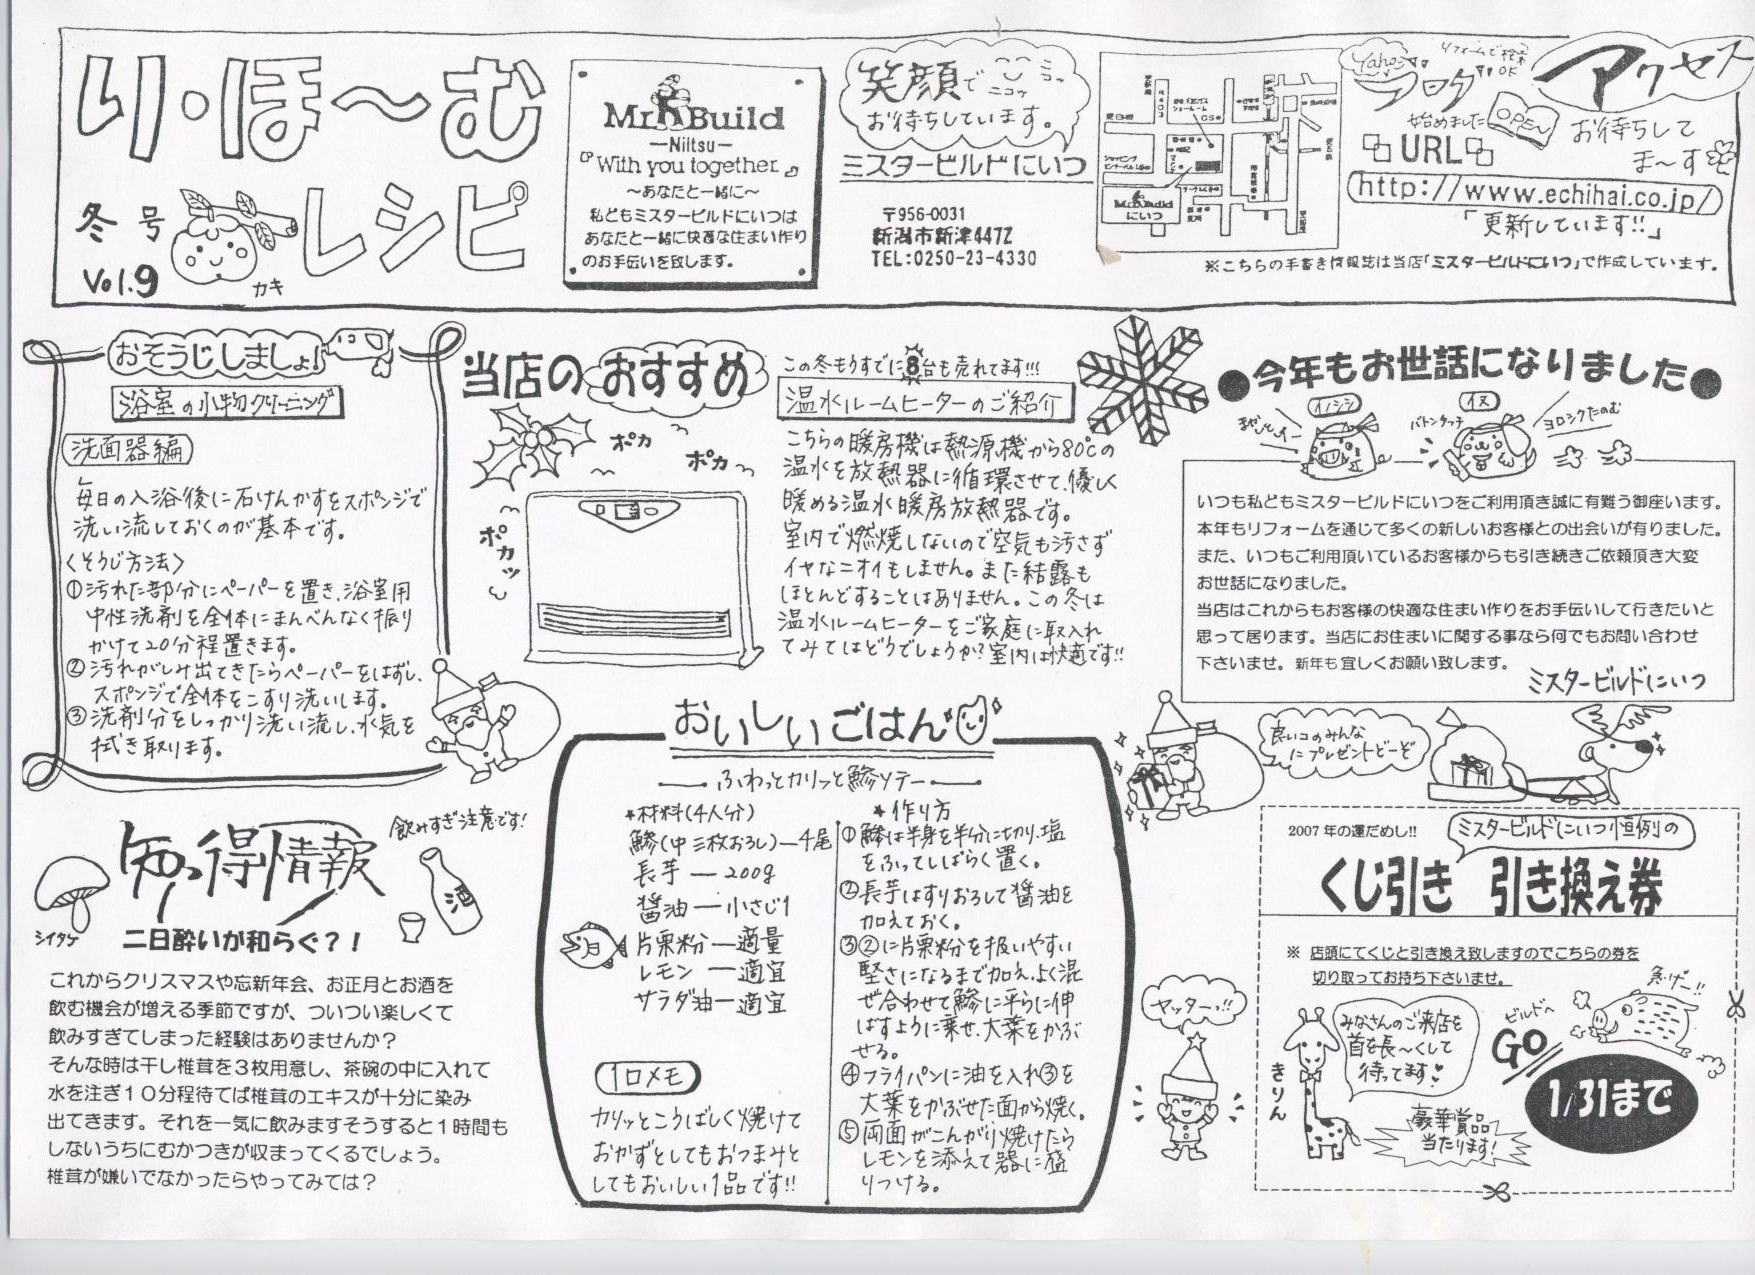 り・ほ～む
レシピ
冬号
Vol.9
カキ
Mr. Build
—Niitsu—
『With you together.』
～あなたと一緒に～
私どもミスタービルドにいつは
あなたと一緒に快適な住まい作り
のお手伝いを致します。
笑顔で ニコッ ニコッ
お待ちしています。
ミスタービルドにいつ
〒956-0031
新潟市新津4472
TEL:0250-23-4330
Mr. Build
にいつ
Yahoo リフォームで検索OK
ブログ
始めました
OPEN
アクセス
お待ちして
ま～す
URL
http://www.echihai.co.jp/
「更新しています!!」
※こちらの手書き情報誌は当店「ミスタービルドにいつ」で作成しています。
おそうじしましょ!
浴室の小物クリーニング
洗面器編
毎日の入浴後に石けんかすをスポンジで
洗い流しておくのが基本です。
<そうじ方法>
①汚れた部分にペーパーを置き、浴室用
中性洗剤を全体にまんべんなく振り
かけて20分程置きます。
②汚れがしみ出てきたらペーパーをはずし、
スポンジで全体をこすり洗いします。
③洗剤分をしっかり洗い流し、水気を
拭き取ります。
当店のおすすめ
この冬もうすでに8台も売れてます!!!
温水ルームヒーターのご紹介
ポカ
ポカ
ポカッ
こちらの暖房機は熱源機から80℃の
温水を放熱器に循環させて、優しく
暖める温水暖房放熱器です。
室内で燃焼しないので空気も汚さず
イヤなニオイもしません。また結露も
ほとんどすることはありません。この冬は
温水ルームヒーターをご家庭に取入れ
てみてはどうでしょうか?室内は快適です!!
●今年もお世話になりました●
イノシシ
イヌ
バトンタッチ
ヨロシクたのむ
いつも私どもミスタービルドにいつをご利用頂き誠に有難う御座います。
本年もリフォームを通じて多くの新しいお客様との出会いが有りました。
また、いつもご利用頂いているお客様からも引き続きご依頼頂き大変
お世話になりました。
当店はこれからもお客様の快適な住まい作りをお手伝いして行きたいと
思って居ります。当店にお住まいに関する事なら何でもお問い合わせ
下さいませ。新年も宜しくお願い致します。
ミスタービルドにいつ
良いコのみんな
にプレゼントどーぞ
知っ得情報
飲みすぎ注意です!
酒
シイタケ
二日酔いが和らぐ?!
これからクリスマスや忘新年会、お正月とお酒を
飲む機会が増える季節ですが、ついつい楽しくて
飲みすぎてしまった経験はありませんか?
そんな時は干し椎茸を3枚用意し、茶碗の中に入れて
水を注ぎ10分程待てば椎茸のエキスが十分に染み
出てきます。それを一気に飲みますそうすると1時間も
しないうちにむかつきが収まってくるでしょう。
椎茸が嫌いでなかったらやってみては?
おいしいごはん
ふわっとカリッと鯵ソテー
*材料(4人分)
鯵(中 三枚おろし)—4尾
長芋—200g
醤油—小さじ1
片栗粉—適量
レモン—適宜
サラダ油—適宜
1口メモ
カリッとこうばしく焼けて
おかずとしてもおつまみと
してもおいしい1品です!!
*作り方
①鯵は半身を半分に切り、塩
をふってしばらく置く。
②長芋はすりおろして醤油を
加えておく。
③②に片栗粉を扱いやすい
堅さになるまで加え、よく混
ぜ合わせて鯵に平らに伸
ばすように乗せ、大葉をかぶ
せる。
④フライパンに油を入れ③を
大葉をかぶせた面から焼く。
⑤両面がこんがり焼けたら
レモンを添えて器に盛
りつける。
ヤッターっ!!
2007年の運だめし!!
ミスタービルドにいつ恒例の
くじ引き 引き換え券
※ 店頭にてくじと引き換え致しますのでこちらの券を
切り取ってお持ち下さいませ。
みなさんのご来店を
首を長～くして
待ってます
きりん
豪華賞品
当たります!
ビルドへ
GO
急げー!!
1/31まで